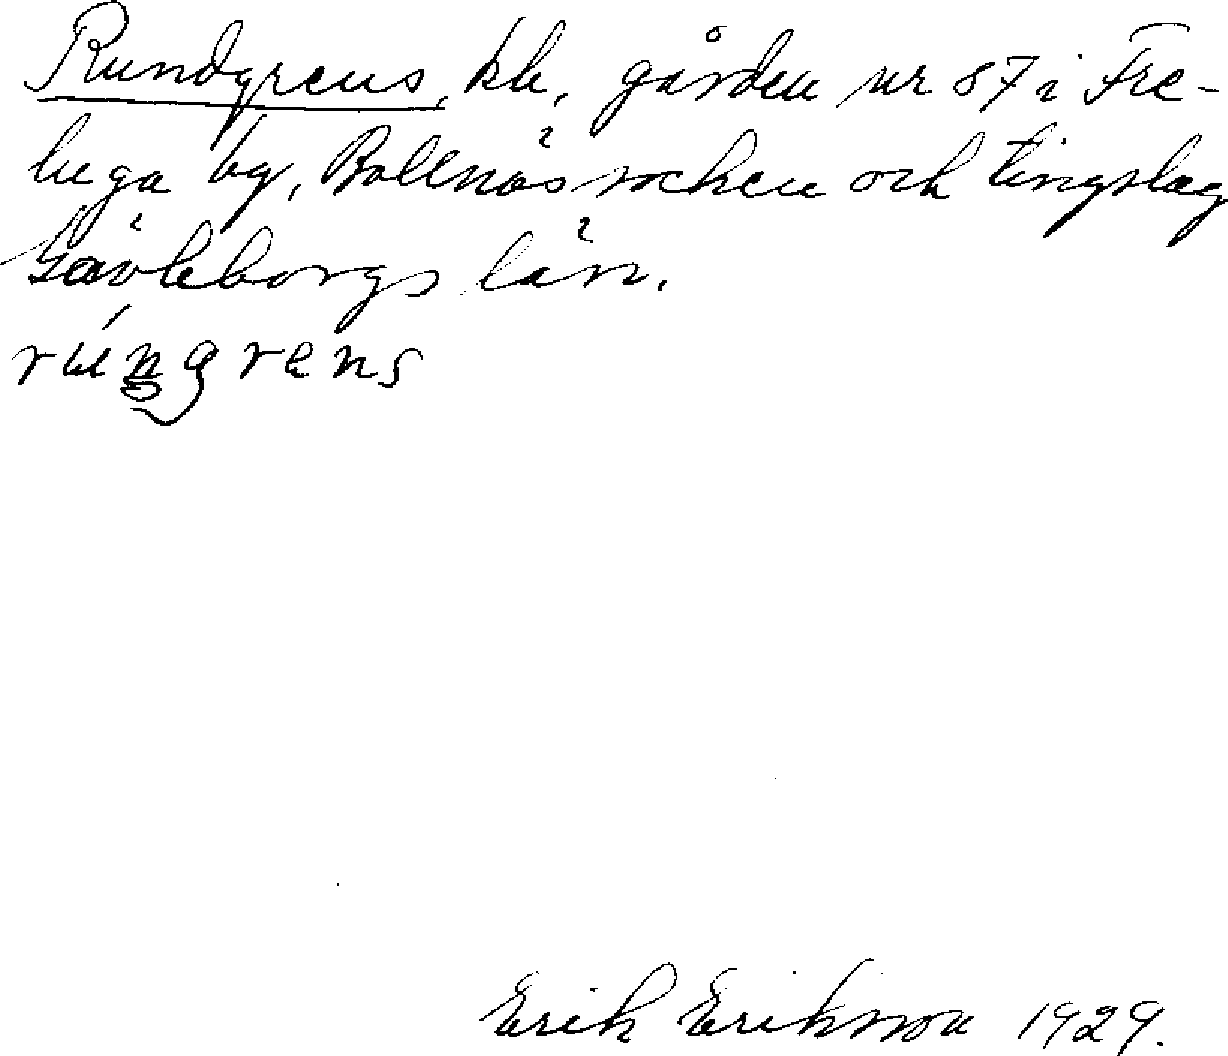 Rundgrens, kk, gården nr 87 i Fre-
luga by, Bollnäs socken och tingslag
Gävleborgs län.
rúngrens
Erik Eriksson 1929.